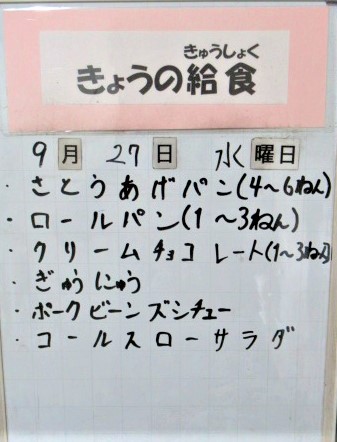 きゅうしょく
きょうの給食
9月27日 水曜日
・さとうあげパン(4〜6ねん)
・ロールパン(1〜3ねん)
・クリームチョコレート(1〜3ねん)
・ぎゅうにゅう
・ポークビーンズシチュー
・コールスローサラダ